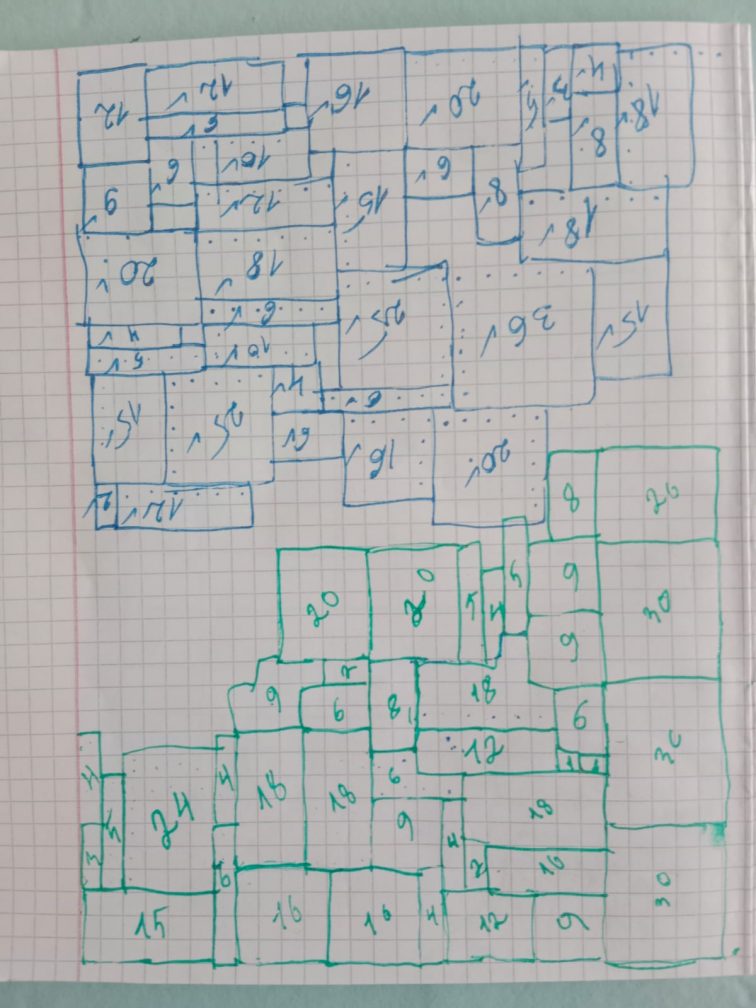 12 12 16 20 5 3 4 18
6 10 6 8 8
9 12 15 18
20 18
6 25 36 15
4
5 10 4 6
15 25 6 16 20
2 12
8 20
20 20 5 4 5 9 30
9
9 2 6 8 18 6
12 1 1 30
4 24 4 18 18 6 18
5 9 4
3 6 2 10
15 16 16 4 12 9 30